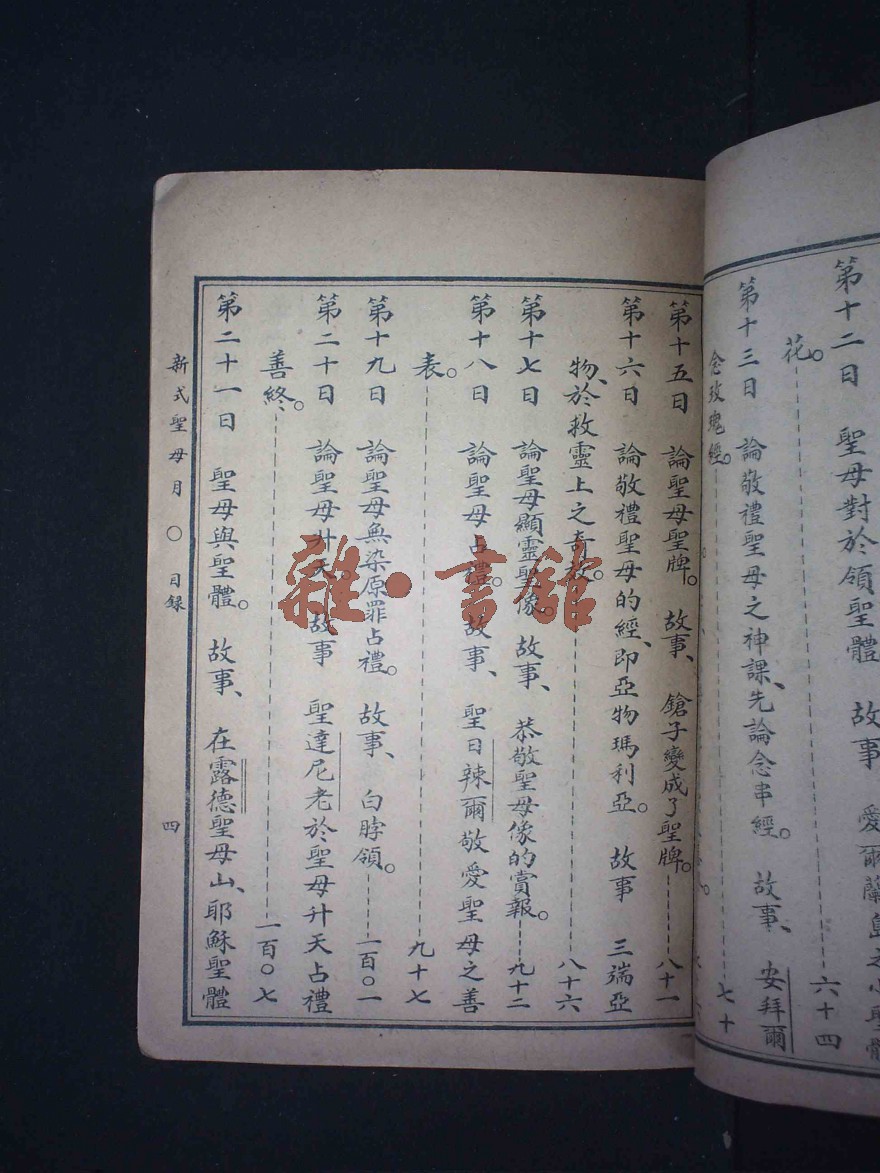 第十二日　聖母對於領聖體　故事　愛爾蘭島之小聖體
花。六十四
第十三日　論敬禮聖母之神課、先論念串經。故事、安拜爾
念玫瑰經。七十
第十五日　論聖母聖牌。故事、鎗子變成了聖牌。八十一
第十六日　論敬禮聖母的經、即亞物瑪利亞。故事　三端亞
物、於救靈上之奇效。八十六
第十七日　論聖母顯靈聖像。故事、恭敬聖母像的賞報。九十二
第十八日　論聖母占禮。故事、聖日辣爾敬愛聖母之善
表。九十七
第十九日　論聖母無染原罪占禮。故事、白脖領。一百〇一
第二十日　論聖母升天。故事　聖達尼老於聖母升天占禮
善終。一百〇七
第二十一日　聖母與聖體。故事、在露德聖母山、耶穌聖體
新式聖母月　〇　目錄　四
雜·書館